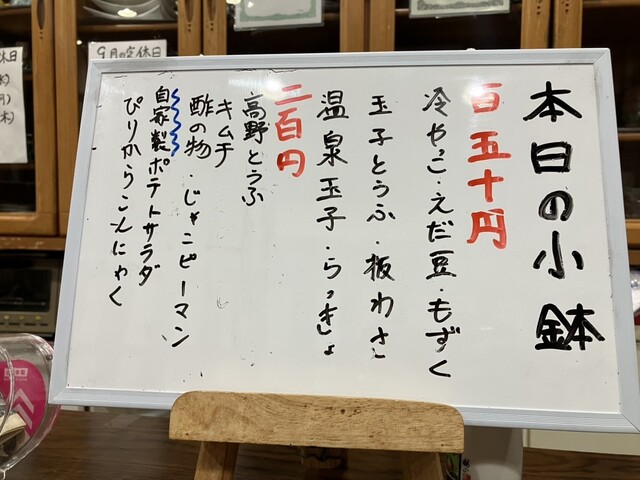 本日の小鉢
百五十円
冷やっこ・えだ豆・もずく
玉子とうふ・板わさ
温泉玉子・らっきょ
二百円
高野とうふ
キムチ
酢の物・じゃこピーマン
自家製ポテトサラダ
ぴりからこんにゃく
9月の定休日